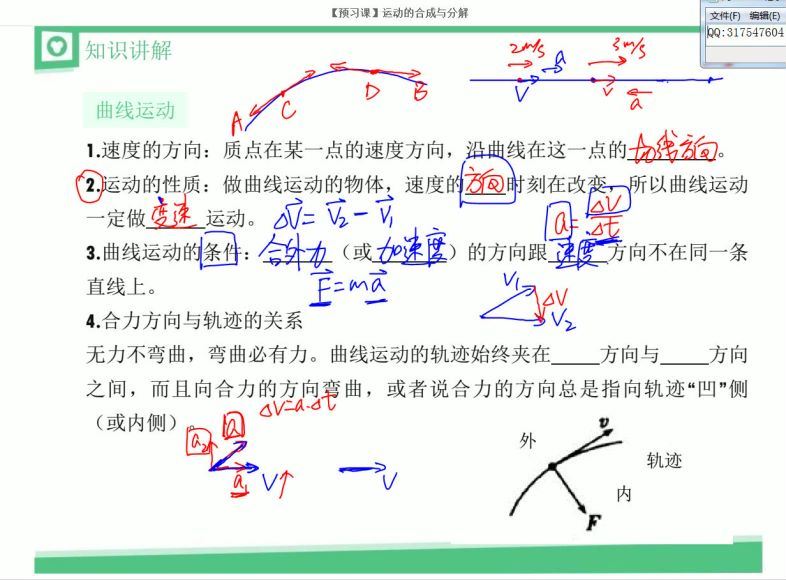 【预习课】运动的合成与分解
文件(F) 编辑(E)
QQ:317547604
知识讲解
2m/s a 3m/s
A C D B
V v a
曲线运动
1.速度的方向：质点在某一点的速度方向，沿曲线在这一点的切线方向。
2.运动的性质：做曲线运动的物体，速度的方向时刻在改变，所以曲线运动
一定做变速运动。 ΔV=V₂-V₁ a=ΔV/Δt
3.曲线运动的条件：合外力（或加速度）的方向跟速度方向不在同一条
直线上。 F=ma
V₁ ΔV V₂
4.合力方向与轨迹的关系
无力不弯曲，弯曲必有力。曲线运动的轨迹始终夹在_____方向与_____方向
之间，而且向合力的方向弯曲，或者说合力的方向总是指向轨迹“凹”侧
（或内侧）。 ΔV=a·Δt
a₂ a a₁ V↑ V
外 v 轨迹
内 F